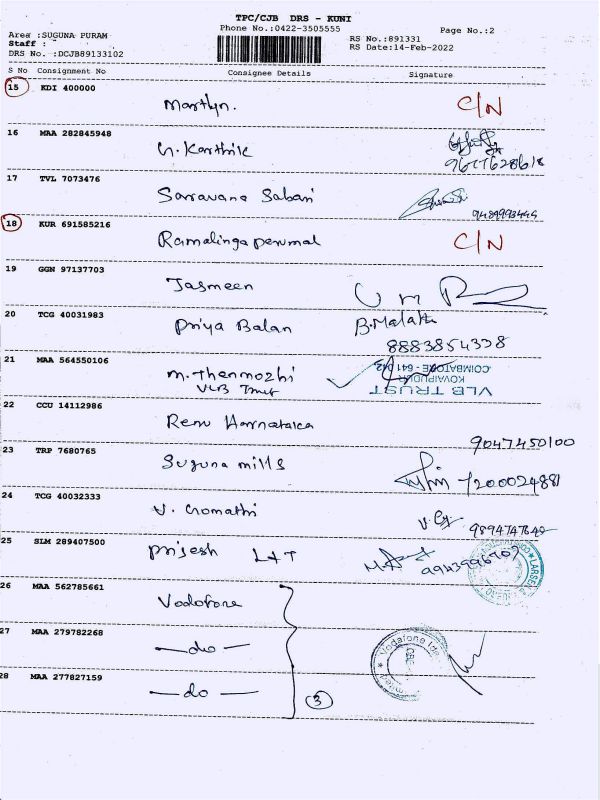 TPC/CJB DRS - KUNI
Phone No.:0422-3505555 Page No.:2
Area :SUGUNA PURAM RS No.:891331
Staff : RS Date:14-Feb-2022
DRS No. :DCJB89133102
S No Consignment No Consignee Details Signature
15 KDI 400000 Martlyn. C/N
16 MAA 282845948 G. Karthik
17 TVL 7073476 Saravana Sabari 9489993444
18 KUR 691585216 Ramalinga perumal C/N
19 GGN 97137703 Jasmeen
20 TCG 40031983 Priya Balan B.Malathi
8883854338
21 MAA 564550106 M. Thenmozhi
VLB Trust
VLB TRUST
KOVAIPUDUR
COIMBATORE - 641 042.
22 CCU 14112986 Renu Harnataka
9047450100
23 TRP 7680765 Suguna mills 7200024881
24 TCG 40032333 V. Gomathi
9894747640
25 SLM 289407500 Prijesh L&T 9943996707
26 MAA 562785661 Vodofone
27 MAA 279782268 — do —
28 MAA 277827159 — do — 3
Vodafone Ide